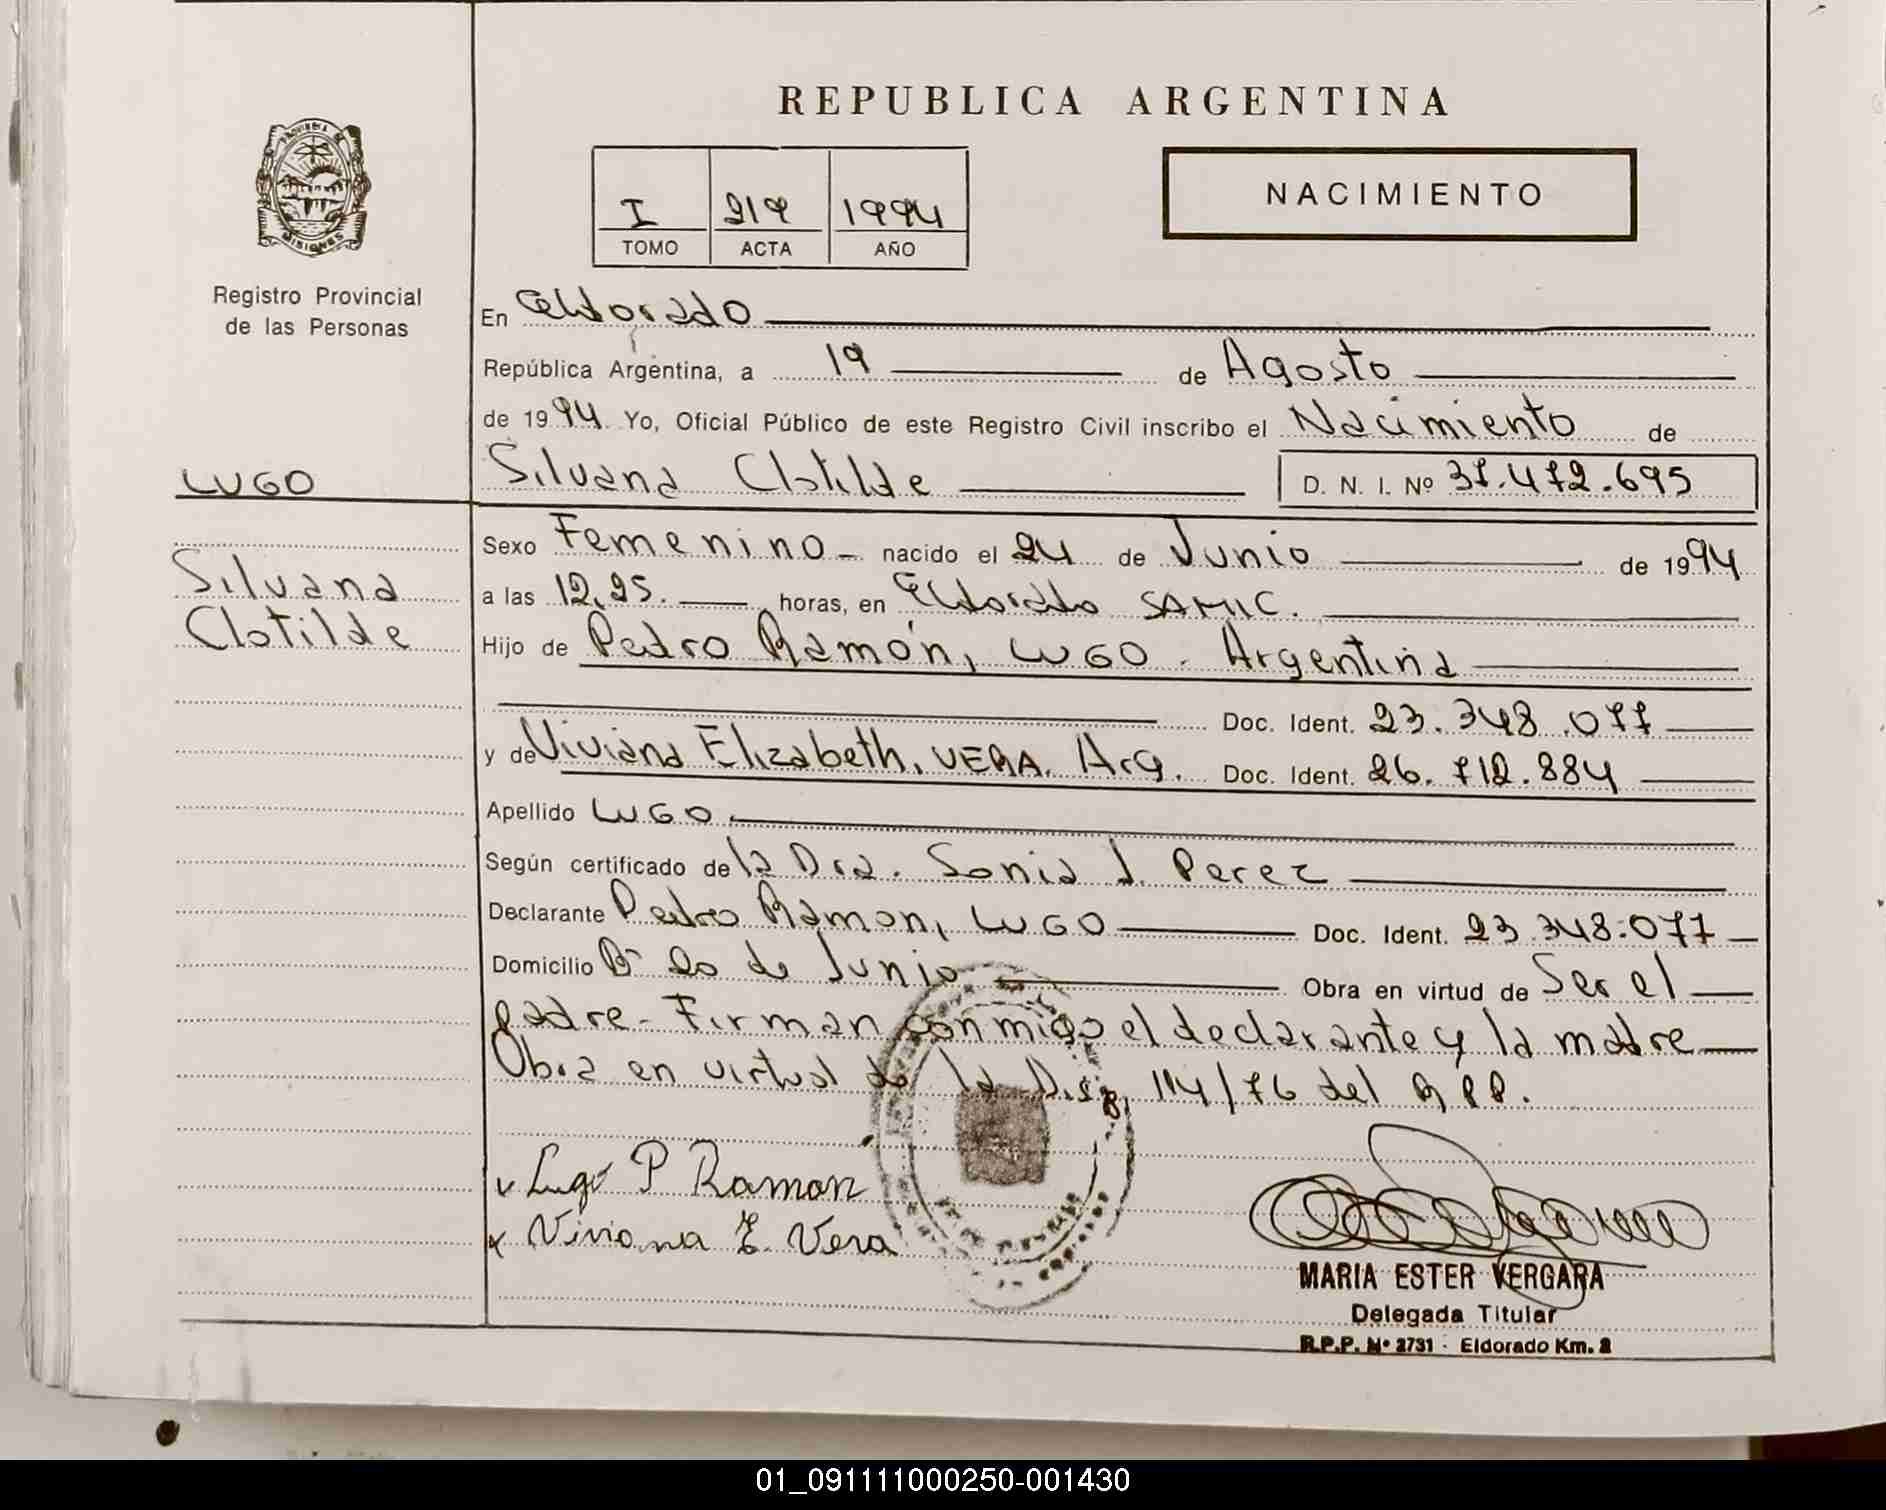 REPUBLICA ARGENTINA
PROVINCIA DE
MISIONES
Registro Provincial
de las Personas
I 219 1994
TOMO ACTA AÑO
NACIMIENTO
En Eldorado
República Argentina, a 19 de Agosto
de 1994 Yo, Oficial Público de este Registro Civil inscribo el Nacimiento de
LUGO
Silvana Clotilde D. N. I. Nº 37.472.695
Sexo Femenino nacido el 24 de Junio de 1994
Silvana
Clotilde
a las 12,25. horas, en Eldorado SAMIC.
Hijo de Pedro Ramón, LUGO. Argentina
Doc. Ident. 23.348.077
y de Viviana Elizabeth, VERA. Arg. Doc. Ident. 26.712.884
Apellido LUGO
Según certificado de la Dra. Sonia J. Perez
Declarante Pedro Ramon, LUGO Doc. Ident. 23.348.077
Domicilio Bº 20 de Junio Obra en virtud de Ser el
padre - Firman conmigo el declarante y la madre
Obra en virtud de la Disp. 114/76 del RPP.
Lugo P Ramon
x Viviana E. Vera
MARIA ESTER VERGARA
Delegada Titular
R.P.P. Nº 2731 - Eldorado Km. 2
01_091111000250-001430